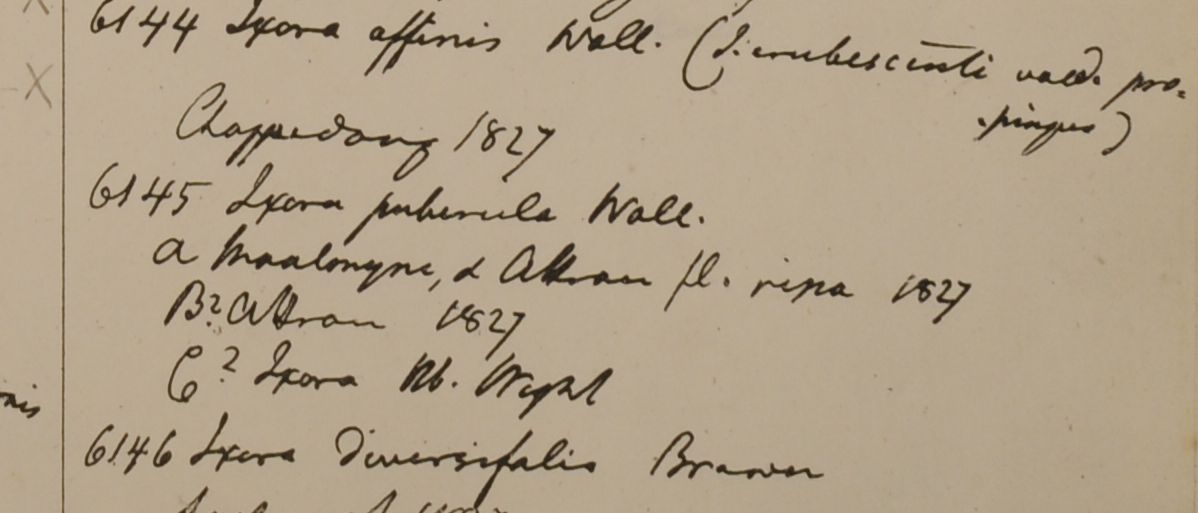 6144 Ixora affinis Wall. (I. erubescenti vald. pro=
pinqua)
Chappedong 1827
6145 Ixora puberula Wall.
a Moalmyne, & Attran fl. ripa 1827
B? Attran 1827
C? Ixora Hb. Wight
6146 Ixora diversifolia